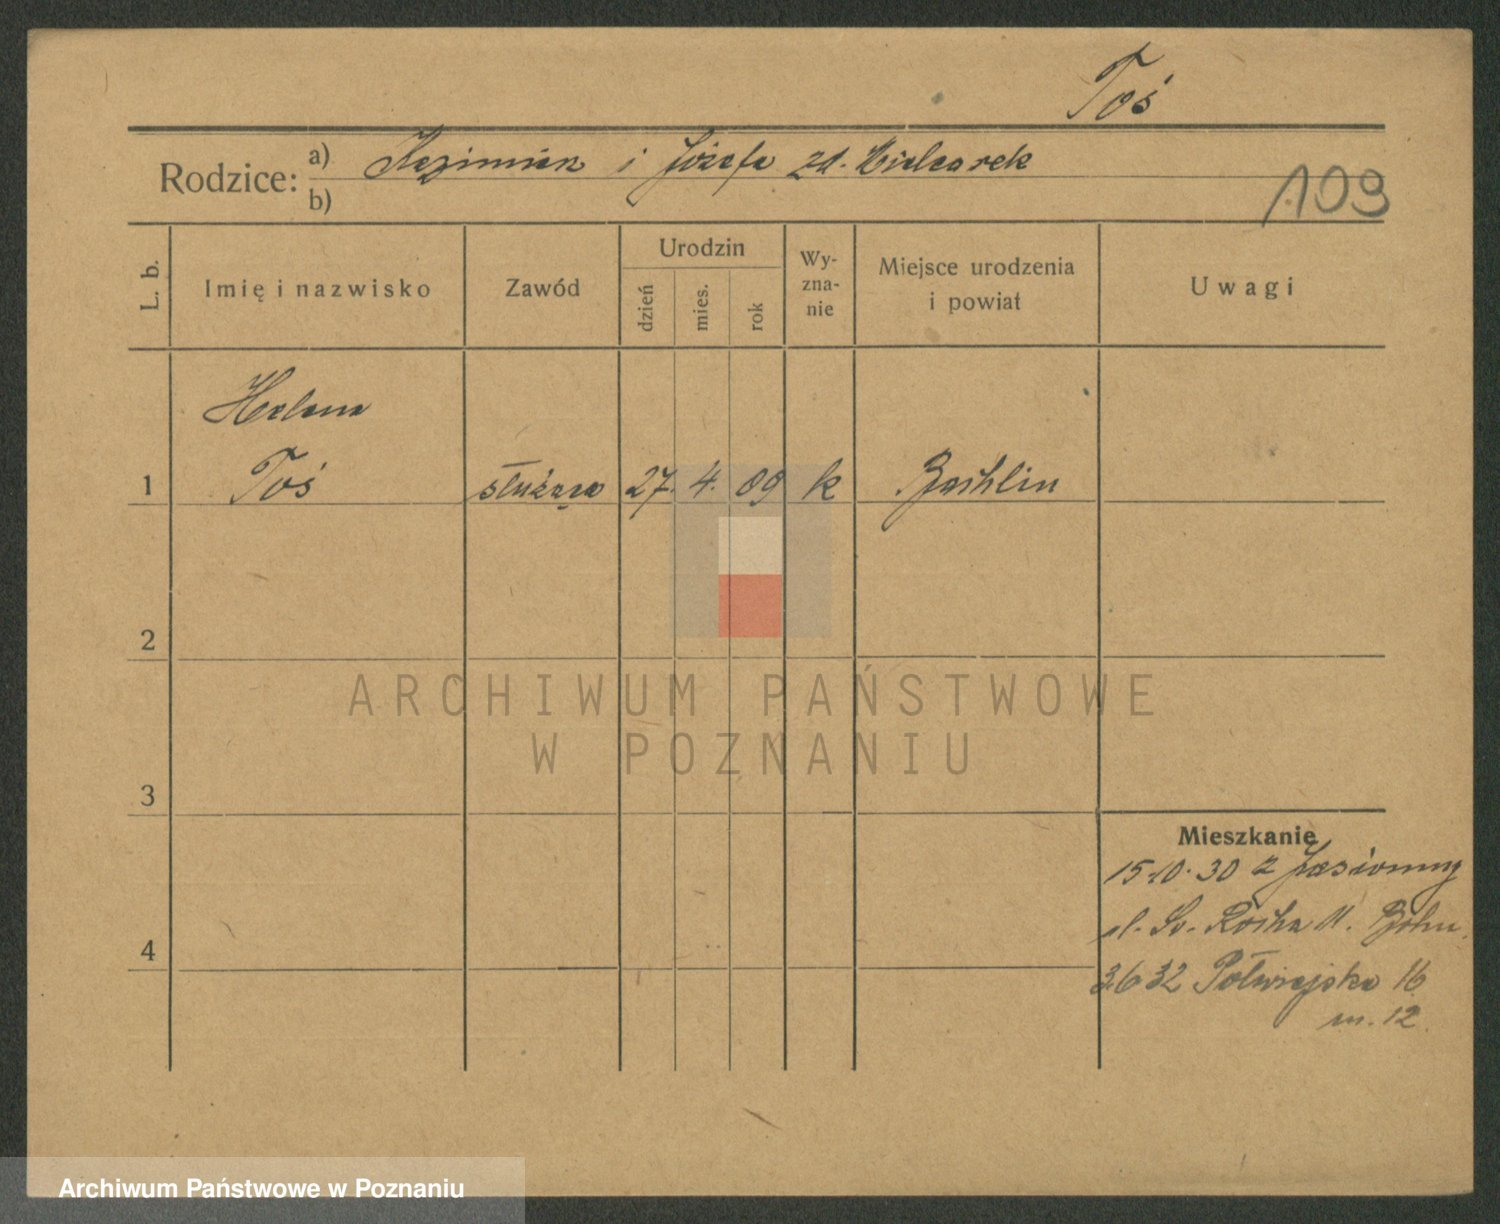 Toś
Rodzice: a) Kazimierz i Józefa zd. Bielcarek
b)
109
L. b.
Imię i nazwisko
Zawód
Urodzin
dzień
mies.
rok
Wy-
zna-
nie
Miejsce urodzenia
i powiat
Uwagi
Helena
1 Toś służąca 27. 4. 09 k
2
3
4
Mieszkanie
15.10.30 z
ul. Św. Rocha 11.
3.6 32 Półwiejska 16
m. 12
ARCHIWUM PAŃSTWOWE
W POZNANIU
Archiwum Państwowe w Poznaniu